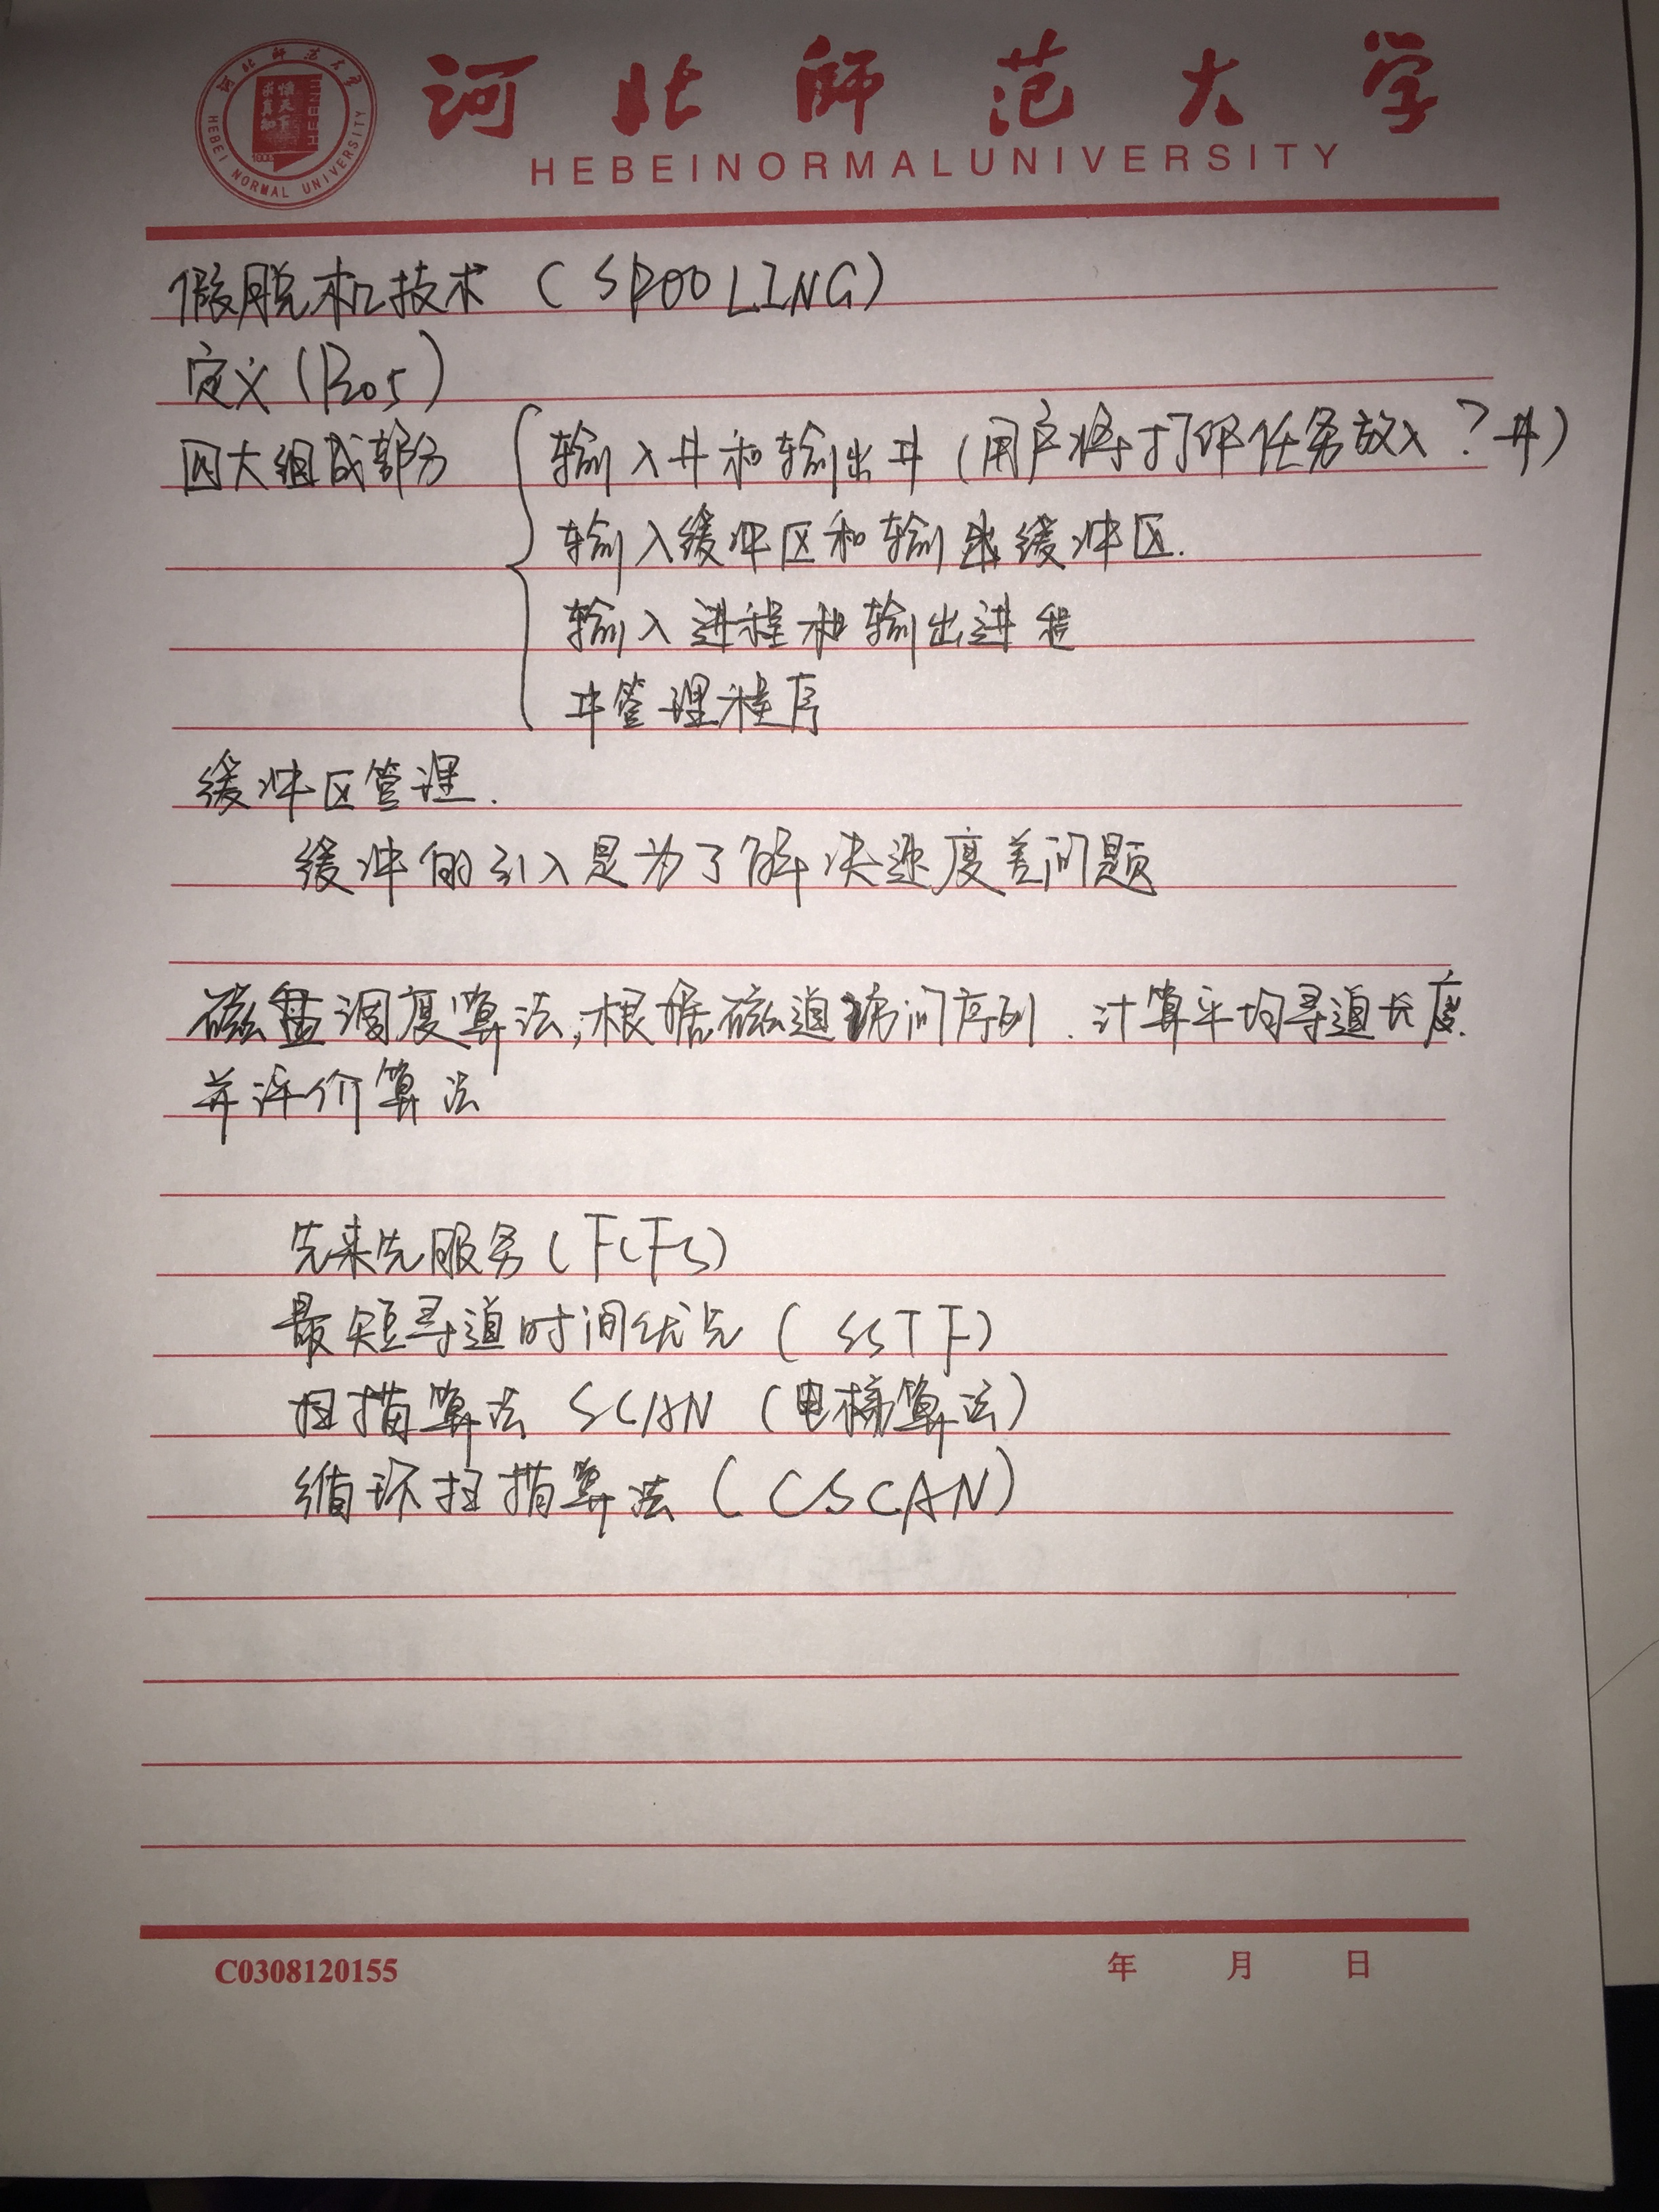 河北师范大学
HEBEINORMALUNIVERSITY
河北师范大学
怀天下
求真知
HEBEI NORMAL UNIVERSITY
假脱机技术(SPOOLING)
定义(P205)
四大组成部分
输入井和输出井(用户将打印任务放入?井)
输入缓冲区和输出缓冲区.
输入进程和输出进程
井管理程序
缓冲区管理.
缓冲的引入是为了解决速度差问题
磁盘调度算法,根据磁道访问序列.计算平均寻道长度.
并评价算法
先来先服务(FCFS)
最短寻道时间优先(SSTF)
扫描算法 SCAN(电梯算法)
循环扫描算法(CSCAN)
C0308120155
年 月 日